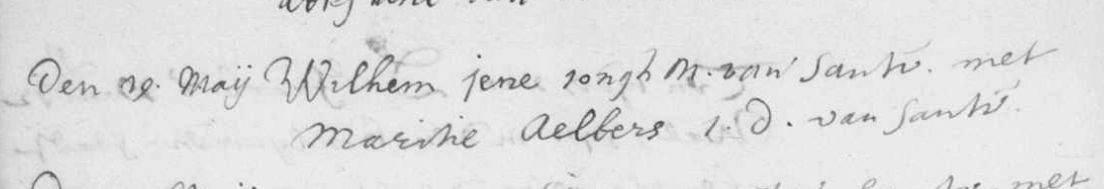 Den 19. Maÿ Wilhem jene jongh M. van Santv. met
Maritie Aelbers j. D. van Santv.
met